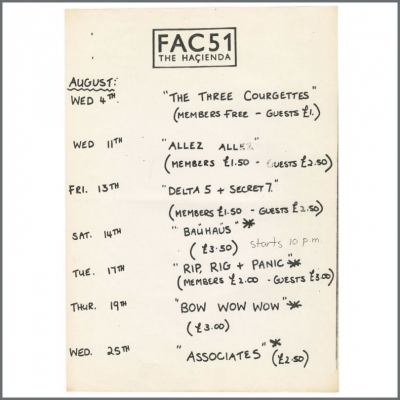 FAC51
THE HAÇIENDA
AUGUST:
WED 4TH "THE THREE COURGETTES"
(MEMBERS FREE - GUESTS £1.)
WED 11TH "ALLEZ ALLEZ"
(MEMBERS £1.50 - GUESTS £2.50)
FRI. 13TH "DELTA 5 + SECRET 7."
(MEMBERS £1.50 - GUESTS £2.50)
SAT. 14TH "BAUHAUS" *
(£3.50) starts 10 p.m
TUE. 17TH "RIP, RIG + PANIC" *
(MEMBERS £2.00 - GUESTS £3.00)
THUR. 19TH "BOW WOW WOW" *
(£3.00)
WED. 25TH "ASSOCIATES" * (£2.50)